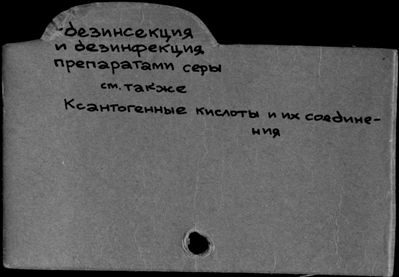 -дезинсекция
и дезинфекция
препаратами серы
см. также
Ксантогенные кислоты и их соедине-
ния